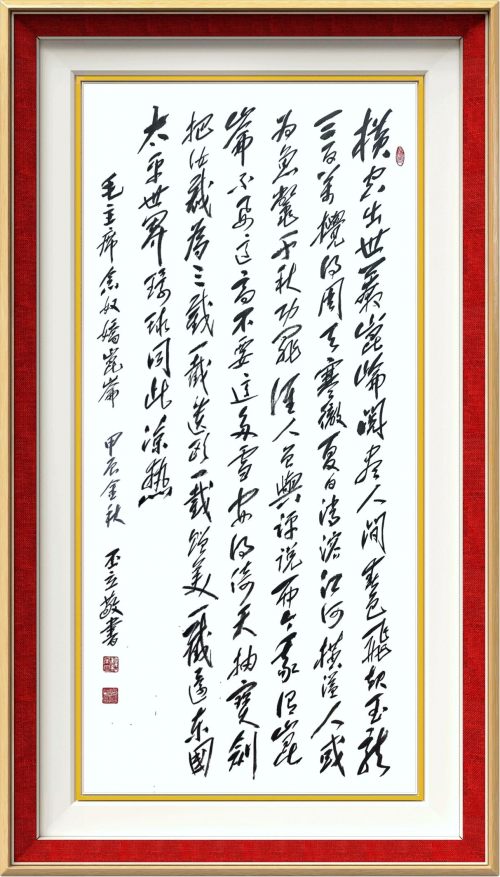 横空出世莽崑崙阅尽人间春色飛起玉龙
三百萬攪得周天寒徹夏日消溶江河横溢人或
为魚鳖千秋功罪谁人曾與评说而今我谓崑
崙不要这高不要这多雪安得倚天抽寶劍
把汝裁為三截一截遗欧一截赠美一截还东國
太平世界环球同此凉热
毛主席念奴嬌崑崙 甲辰金秋 立敬書